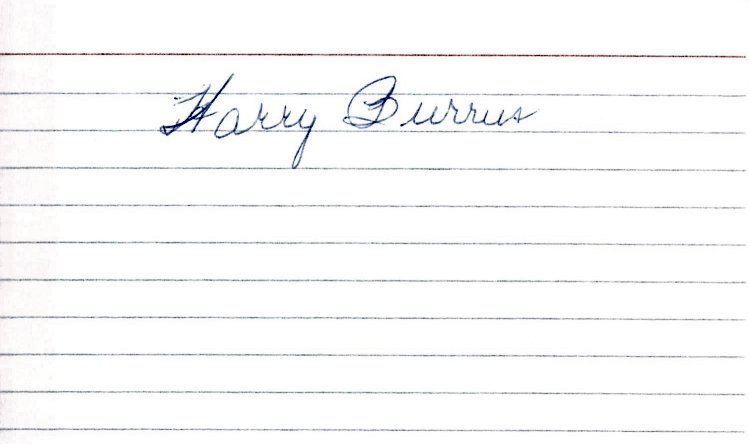 Harry Burrus